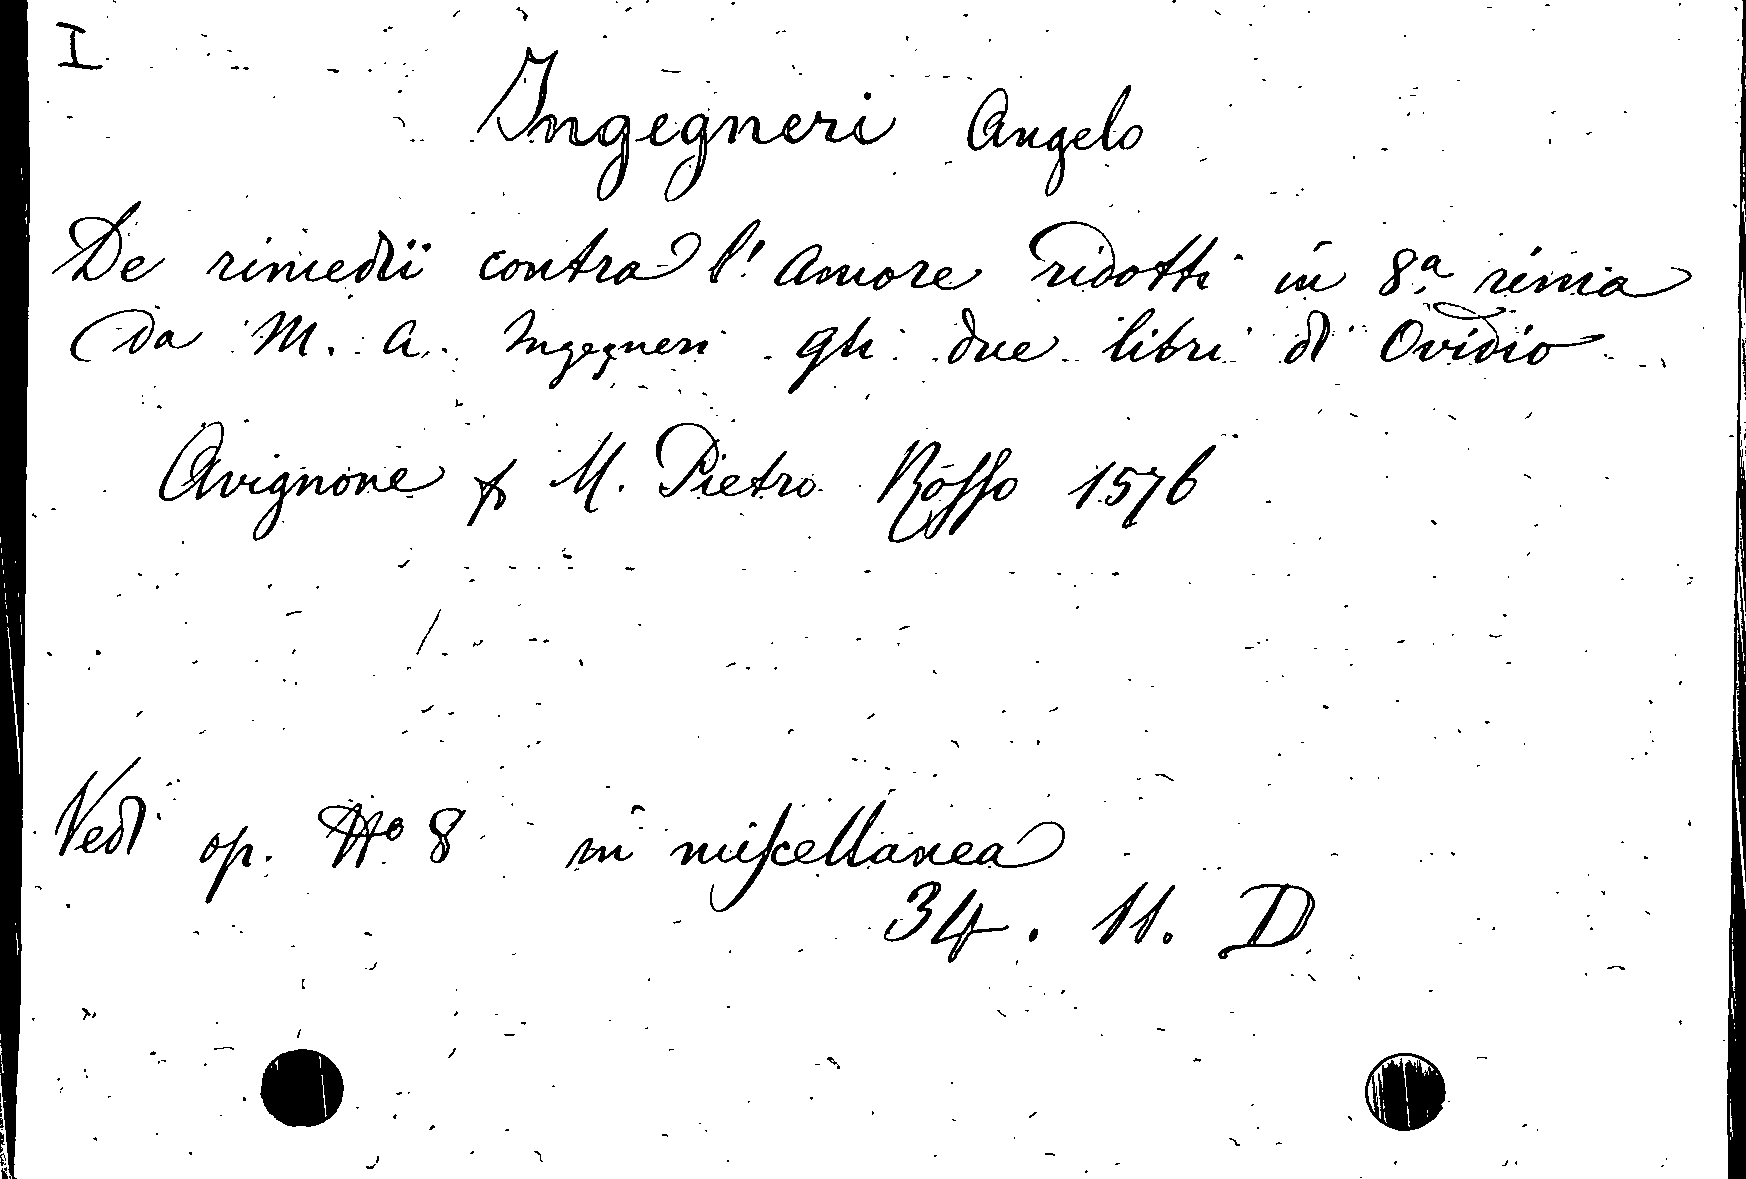 I
Ingegneri Angelo
De rimedii contra l'amore ridotti in 8.a rima
da M. A. Ingegneri gli due libri di Ovidio
Avignone p M. Pietro Rosso 1576
Vedi op. No 8 in miscellanea
34. 11. D